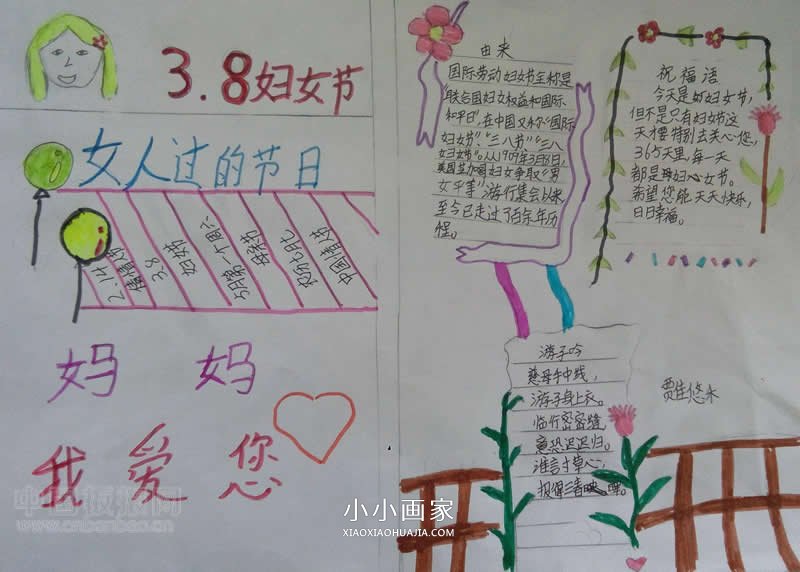 3.8妇女节
女人过的节日
2.14
情人节
3.8
妇女节
5月第一个周六
母亲节
农历七月七
中国情人节
妈 妈
我 爱 您
由来
国际劳动妇女节全称是
"联合国妇女权益和国际
和平日",在中国又称"国际
妇女节"、"三八节"、"三八
妇女节"。从1909年3月8日,
美国芝加哥妇女争取"男
女平等"游行集会以来
至今已走过了百余年历
程。
祝福语
今天是妇女节,
但不是只有妇女节这
天才要特别去关心您,
365天里,每一天
都是母妇女节。
希望您能天天快乐,
日日幸福。
游子吟
慈母手中线,
游子身上衣。
临行密密缝,
意恐迟迟归。
谁言寸草心,
报得三春晖。
中国板报网
www.cnbanbao.cn
小小画家
XIAOXIAOHUAJIA.COM